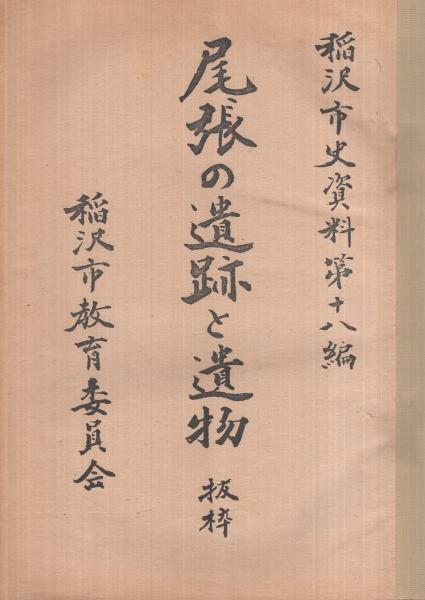 稲沢市史資料第十八編
尾張の遺跡と遺物 抜粋
稲沢市教育委員会